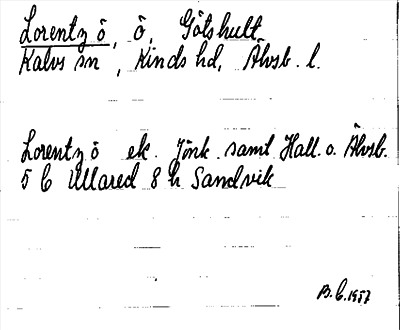 Lorentz ö, ö, Götshult
Kalvs sn, Kinds hd, Älvsb. l.
Lorentz ö ek. Jönk. samt Hall. o. Älvsb.
5 C Ullared 8 h Sandvik
B.C. 1957